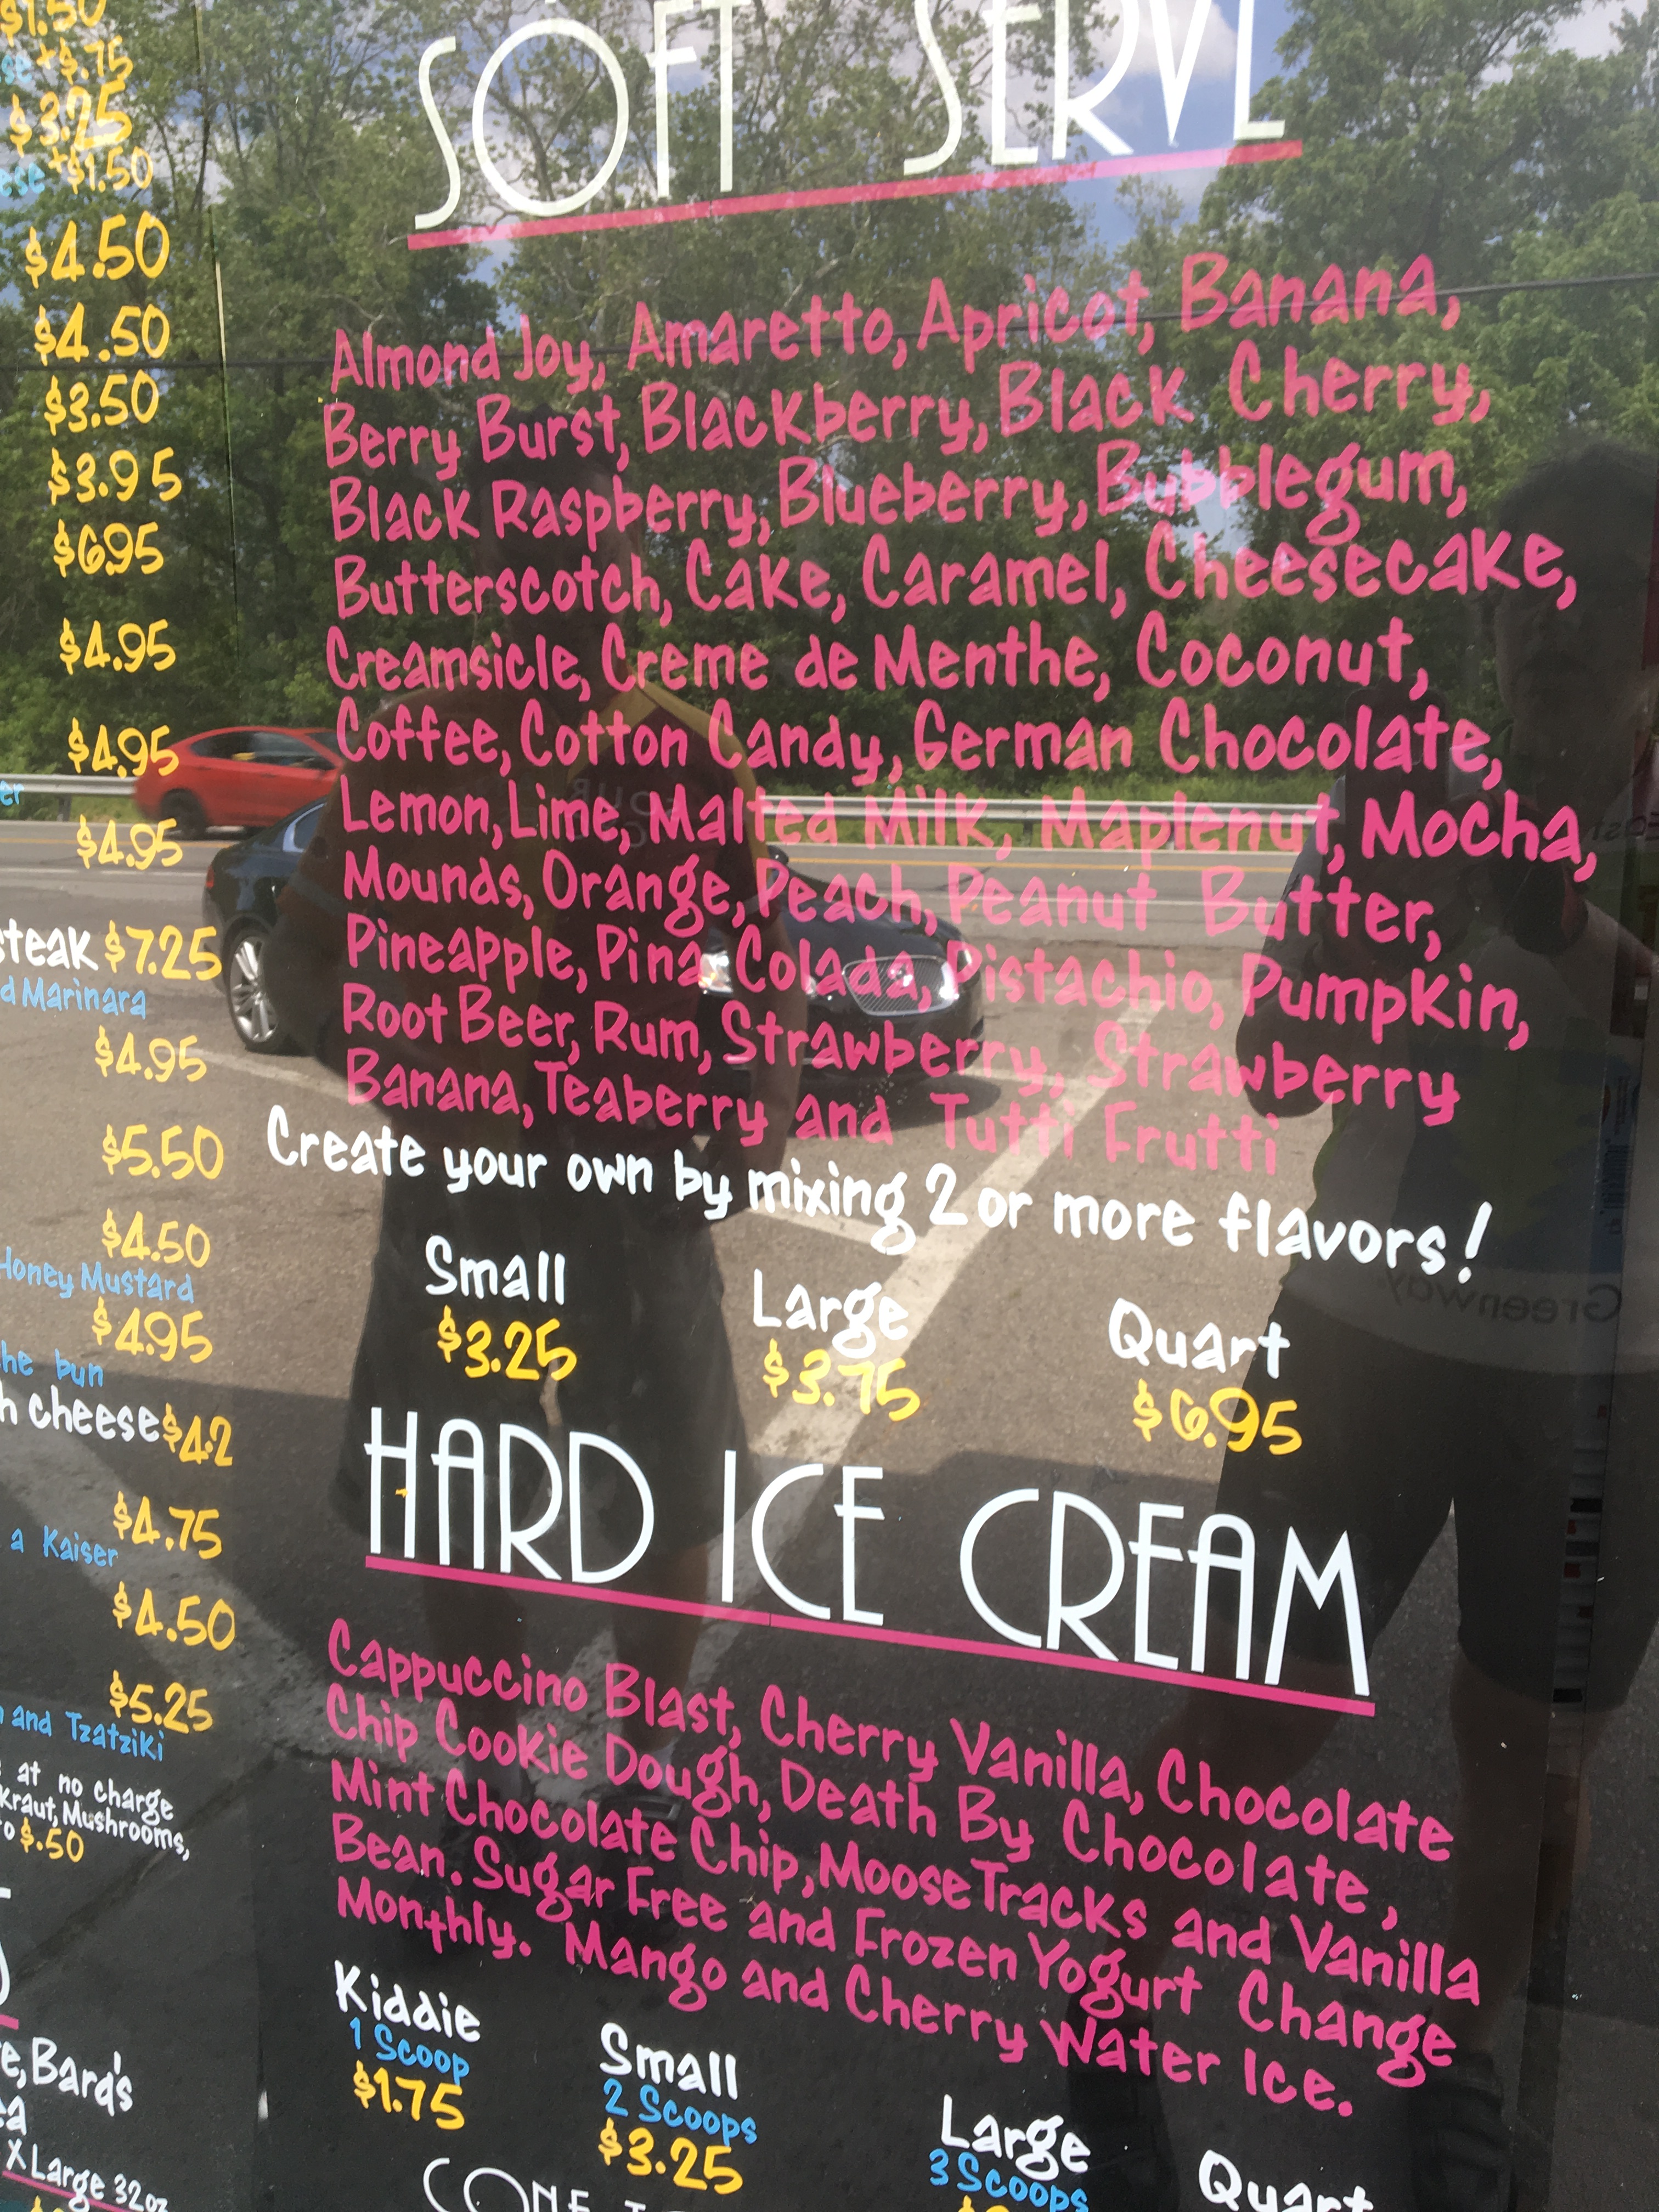 $1.50
se +$.75
$3.25
ese +$1.50
$4.50
$4.50
$3.50
$3.95
$6.95
$4.95
$4.95
er
$4.95
steak $7.25
d Marinara
$4.95
$5.50
$4.50
Honey Mustard
$4.95
he bun
h cheese $4.2
$4.75
a Kaiser
$4.50
$5.25
n and Tzatziki
at no charge
kraut, Mushrooms,
to $.50
e, Bard's
ea
X Large 32oz
SOFT SERVE
Almond Joy, Amaretto, Apricot, Banana,
Berry Burst, Blackberry, Black Cherry,
Black Raspberry, Blueberry, Bubblegum,
Butterscotch, Cake, Caramel, Cheesecake,
Creamsicle, Creme de Menthe, Coconut,
Coffee, Cotton Candy, German Chocolate,
Lemon, Lime, Malted Milk, Maplenut, Mocha,
Mounds, Orange, Peach, Peanut Butter,
Pineapple, Pina Colada, Pistachio, Pumpkin,
Root Beer, Rum, Strawberry, Strawberry
Banana, Teaberry and Tutti Frutti
Create your own by mixing 2 or more flavors!
Small Large Quart
$3.25 $3.75 $6.95
HARD ICE CREAM
Cappuccino Blast, Cherry Vanilla, Chocolate
Chip Cookie Dough, Death By Chocolate,
Mint Chocolate Chip, Moose Tracks and Vanilla
Bean. Sugar Free and Frozen Yogurt Change
Monthly. Mango and Cherry Water Ice.
Kiddie Small Large Quart
1 Scoop 2 Scoops 3 Scoops
$1.75 $3.25
CONE
Greenway